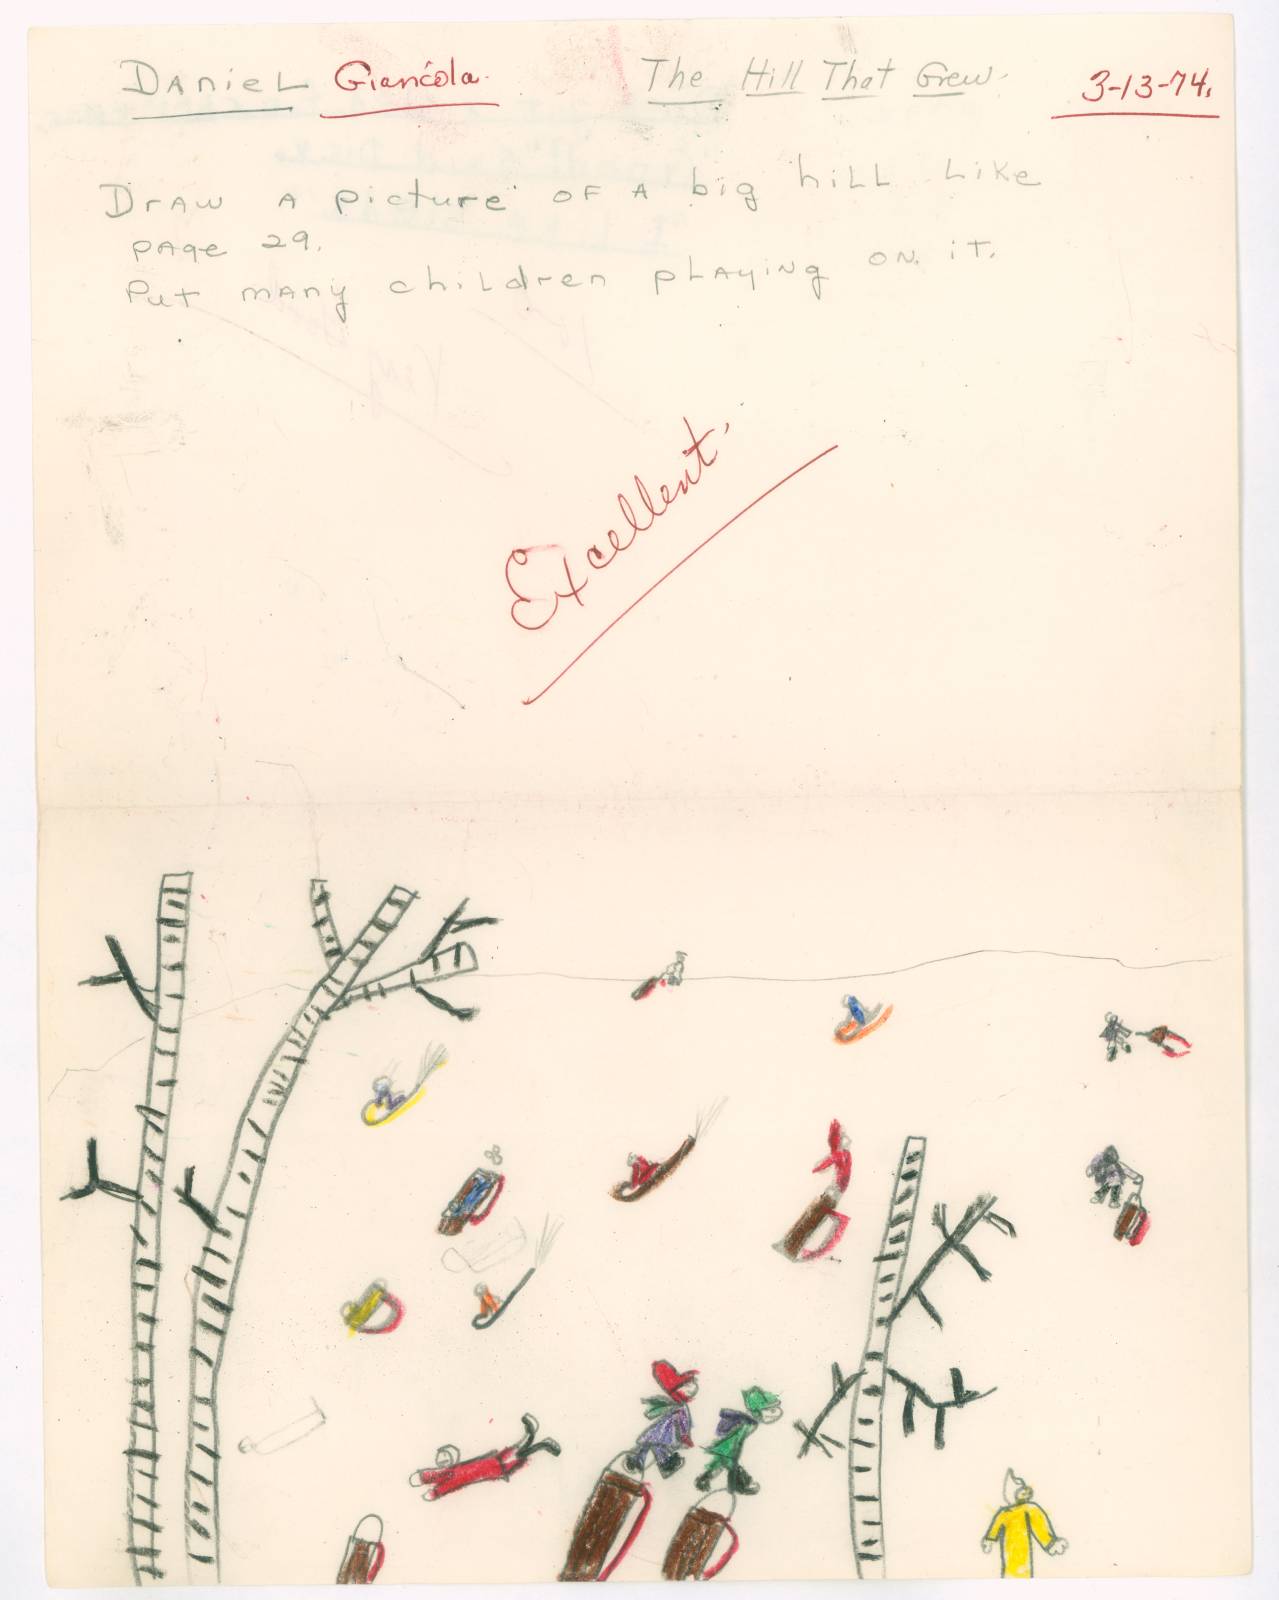 Daniel Giancola. The Hill That Grew. 3-13-74.
Draw a picture of a big hill like
page 29.
Put many children playing on it.
Excellent.